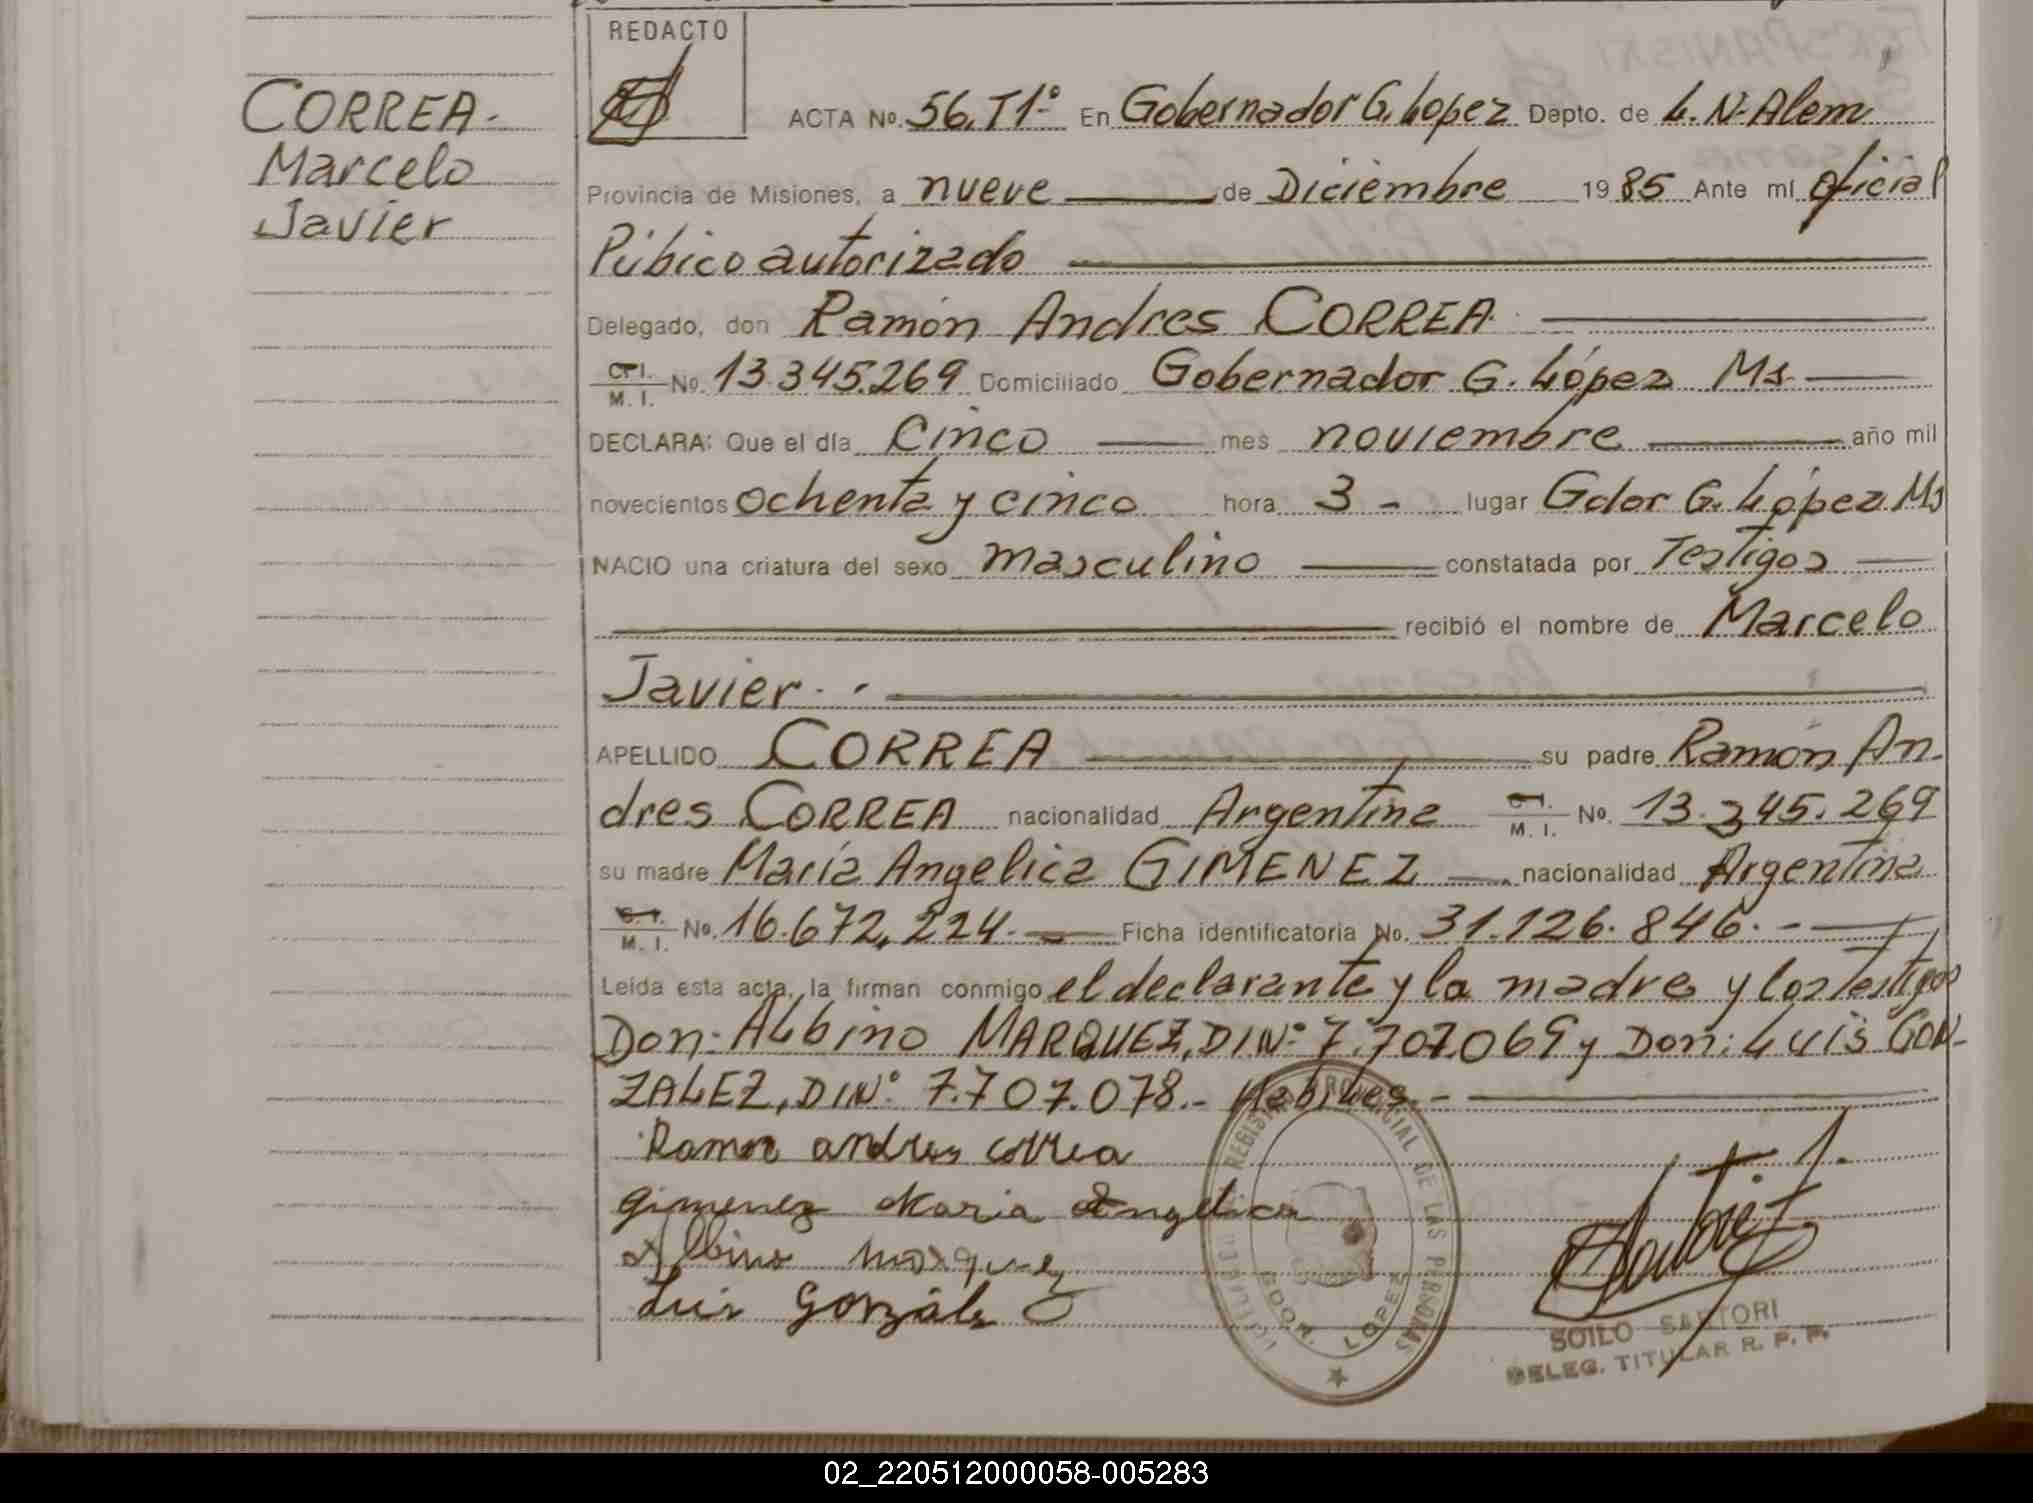 REDACTO
CORREA.
Marcelo
Javier
ACTA No. 56. T1º En Gobernador G. Lopez Depto. de L. N. Alem
Provincia de Misiones, a nueve de Diciembre 1985 Ante mí Oficial
Púbico autorizado
Delegado, don Ramón Andres CORREA.
C. I. M. I. No. 13.345.269 Domiciliado Gobernador G. López Ms.
DECLARA: Que el día Cinco mes noviembre año mil
novecientos ochenta y cinco hora 3 - lugar Gdor G. López Ms
NACIO una criatura del sexo masculino constatada por Testigos
recibió el nombre de Marcelo
Javier.
APELLIDO CORREA su padre Ramón An-
dres CORREA nacionalidad Argentina C. I. M. I. No. 13.345.269
su madre María Angelica GIMENEZ nacionalidad Argentina
C. I. M. I. No. 16.672.224.- Ficha identificatoria No. 31.126.846.-
Leída esta acta, la firman conmigo el declarante y la madre y los testigos
Don: Albino MARQUEZ, DI Nº 7.707.069 y Don: Luis GON-
ZALEZ, DI Nº 7.707.078.- Habiles.-
Ramon andres correa
gimenez Maria Angelica
Albino marquez
Luis Gonzáles
PROVINCIAL DE LAS PERSONAS
GDOR. LOPEZ
SOILO SARTORI
DELEG. TITULAR R. P. P.
02_220512000058-005283